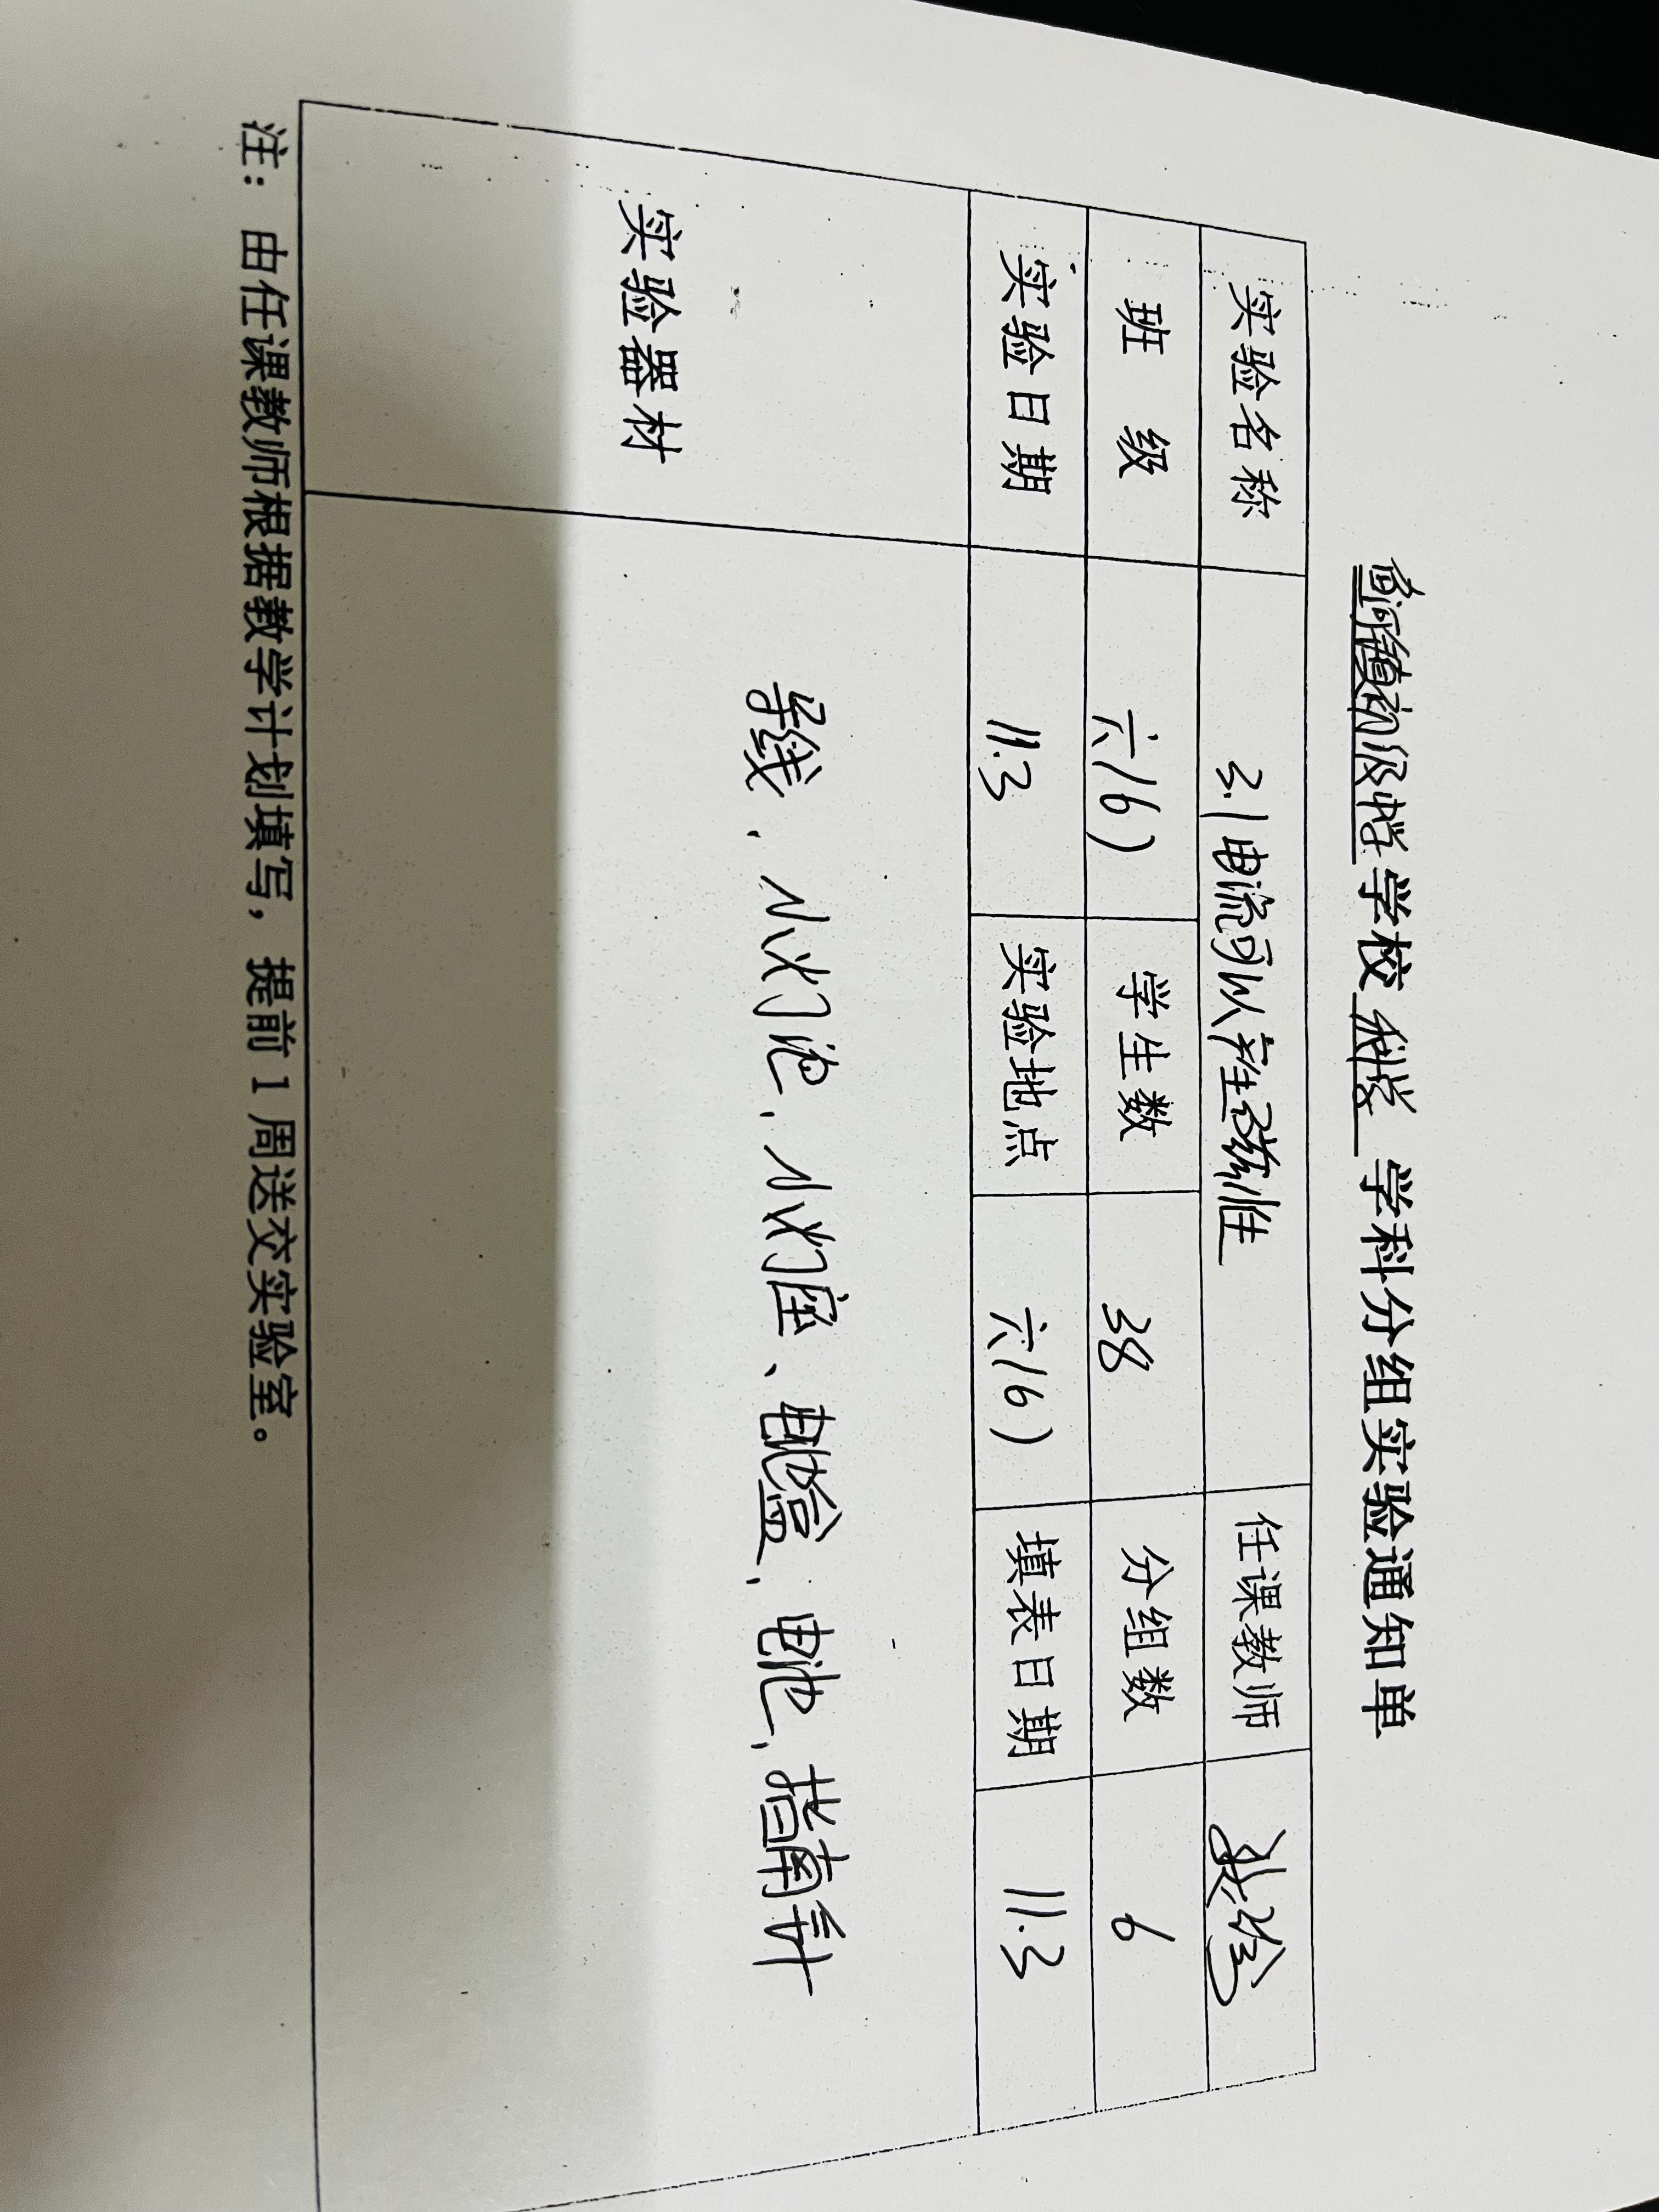 镇初级中学学校 科学 学科分组实验通知单
实验名称 3.1电流可以产生磁性 任课教师
班 级 六(6) 学生数 38 分组数 6
实验日期 11.3 实验地点 六(6) 填表日期 11.3
实验器材 导线、小灯泡、小灯座、电池盒、电池、指南针
注：由任课教师根据教学计划填写，提前1周送交实验室。